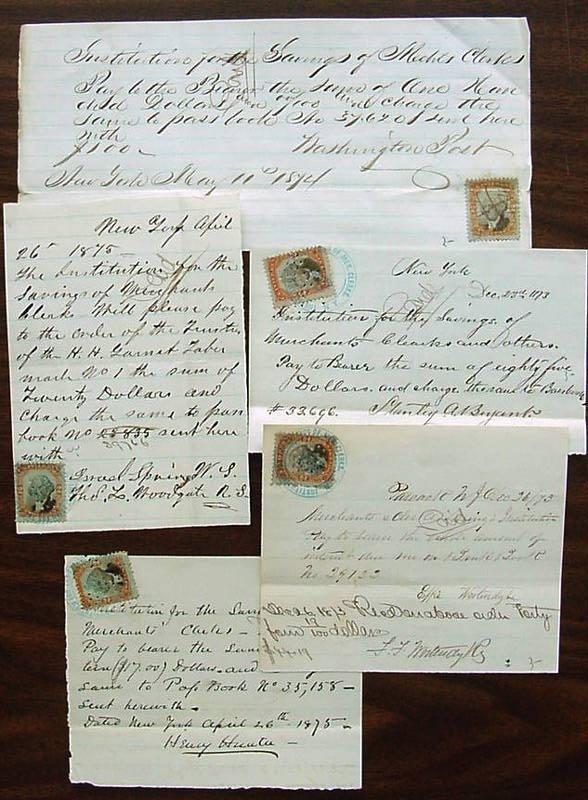 Institution for the Savings of Mchts Clerks
Pay to the Bearer the sum of One Hun
dred Dollars 00/100 and charge the
same to pass book No 37,620 sent here
with
$100- Washington Post
New York May 11th 1874
New York April
26th 1875-
The Institution for the
Savings of Merchants
Clerks Will please pay
to the order of the Trustees
of the H.H. Garnet Taber
nacle No 1 the sum of
Twenty Dollars and
Charge the same to pass
book No 25835 sent here
with
Israel Spring W.S.
Thos. L. Woodgate R.S.
New York
Dec. 23rd 1873
Institution for the Savings of
Merchants Clearks and others.
Pay to Bearer the sum of eighty five
Dollars. and charge the same to Bankbook
# 33,696. Stanley A Bryant
Passaic N.J. Dec 26/73
Merchants Institution
Pay to bearer the amount of
interest due me on Bank Book
No. 29133
Effie
Dec 26, 1873 Forty
four 19/100 dollars
$44.19
Institution for the Savings
Merchants' Clerks-
Pay to bearer the Sum
teen ($17.00) Dollars and
same to Pass Book No 35,158-
sent herewith-
Dated New York April 26th 1875-
Henry Hunter-